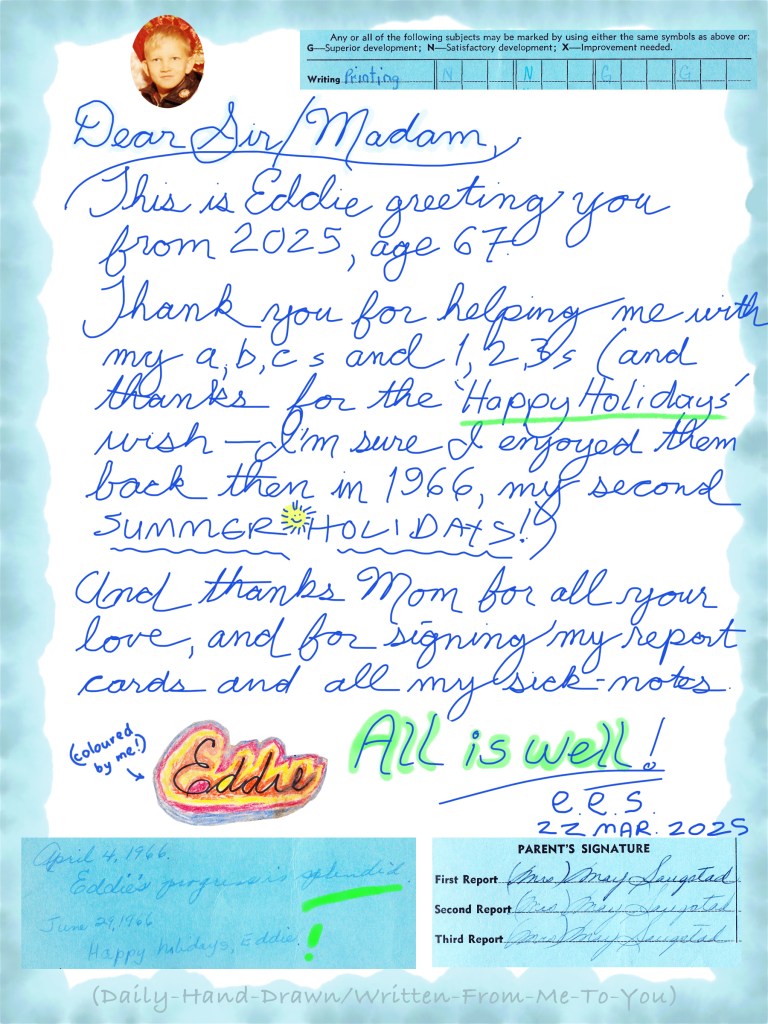 Any or all of the following subjects may be marked by using either the same symbols as above or:
G—Superior development; N—Satisfactory development; X—Improvement needed.
Writing Printing N N G G
Dear Sir/Madam,
This is Eddie greeting you
from 2025, age 67.
Thank you for helping me with
my a,b,c s and 1,2,3s (and
thanks for the 'Happy Holidays'
wish — I'm sure I enjoyed them
back then in 1966, my second
SUMMER HOLIDAYS!)
And thanks Mom for all your
love, and for signing my report
cards and all my sick-notes.
(coloured
by me!)
Eddie
All is well!
e.e.s.
22 MAR. 2025
April 4, 1966.
Eddie's progress is splendid.
June 29, 1966
Happy holidays, Eddie!
PARENT'S SIGNATURE
First Report (Mrs) May Saugstad
Second Report (Mrs) May Saugstad
Third Report (Mrs) May Saugstad
(Daily-Hand-Drawn/Written-From-Me-To-You)